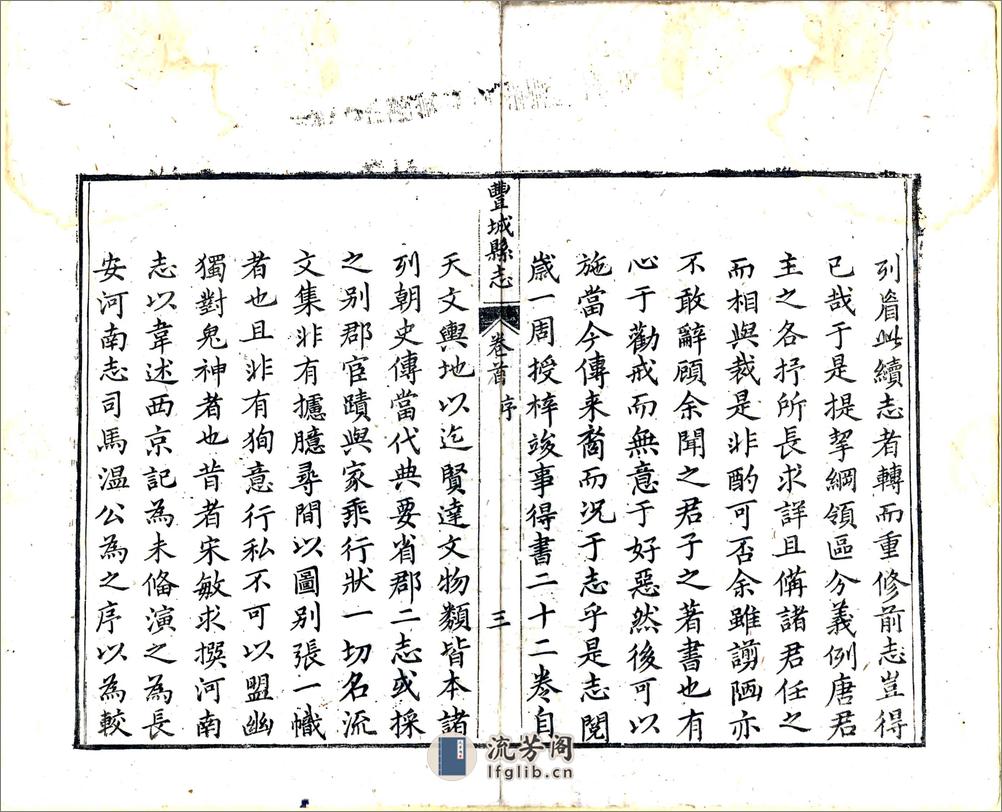 列眉此續志者轉而重修前志豈得
已哉于是提挈綱領區分義例唐君
主之各抒所長求詳且備諸君任之
而相與裁是非酌可否余雖謭陋亦
不敢辭顧余聞之君子之著書也有
心于勸戒而無意于好惡然後可以
施當今傳來裔而况于志乎是志閱
歲一周授梓竣事得書二十二卷自
豐城縣志
卷首
序
三
天文輿地以迄賢達文物類皆本諸
列朝史傳當代典要省郡二志或採
之别郡宦蹟與家乘行狀一切名流
文集非有攄臆尋間以圖别張一幟
者也且非有狥意行私不可以盟幽
獨對鬼神者也昔者宋敏求撰河南
志以韋述西京記為未偹演之為長
安河南志司馬温公為之序以為較
流芳阁
lfglib.cn